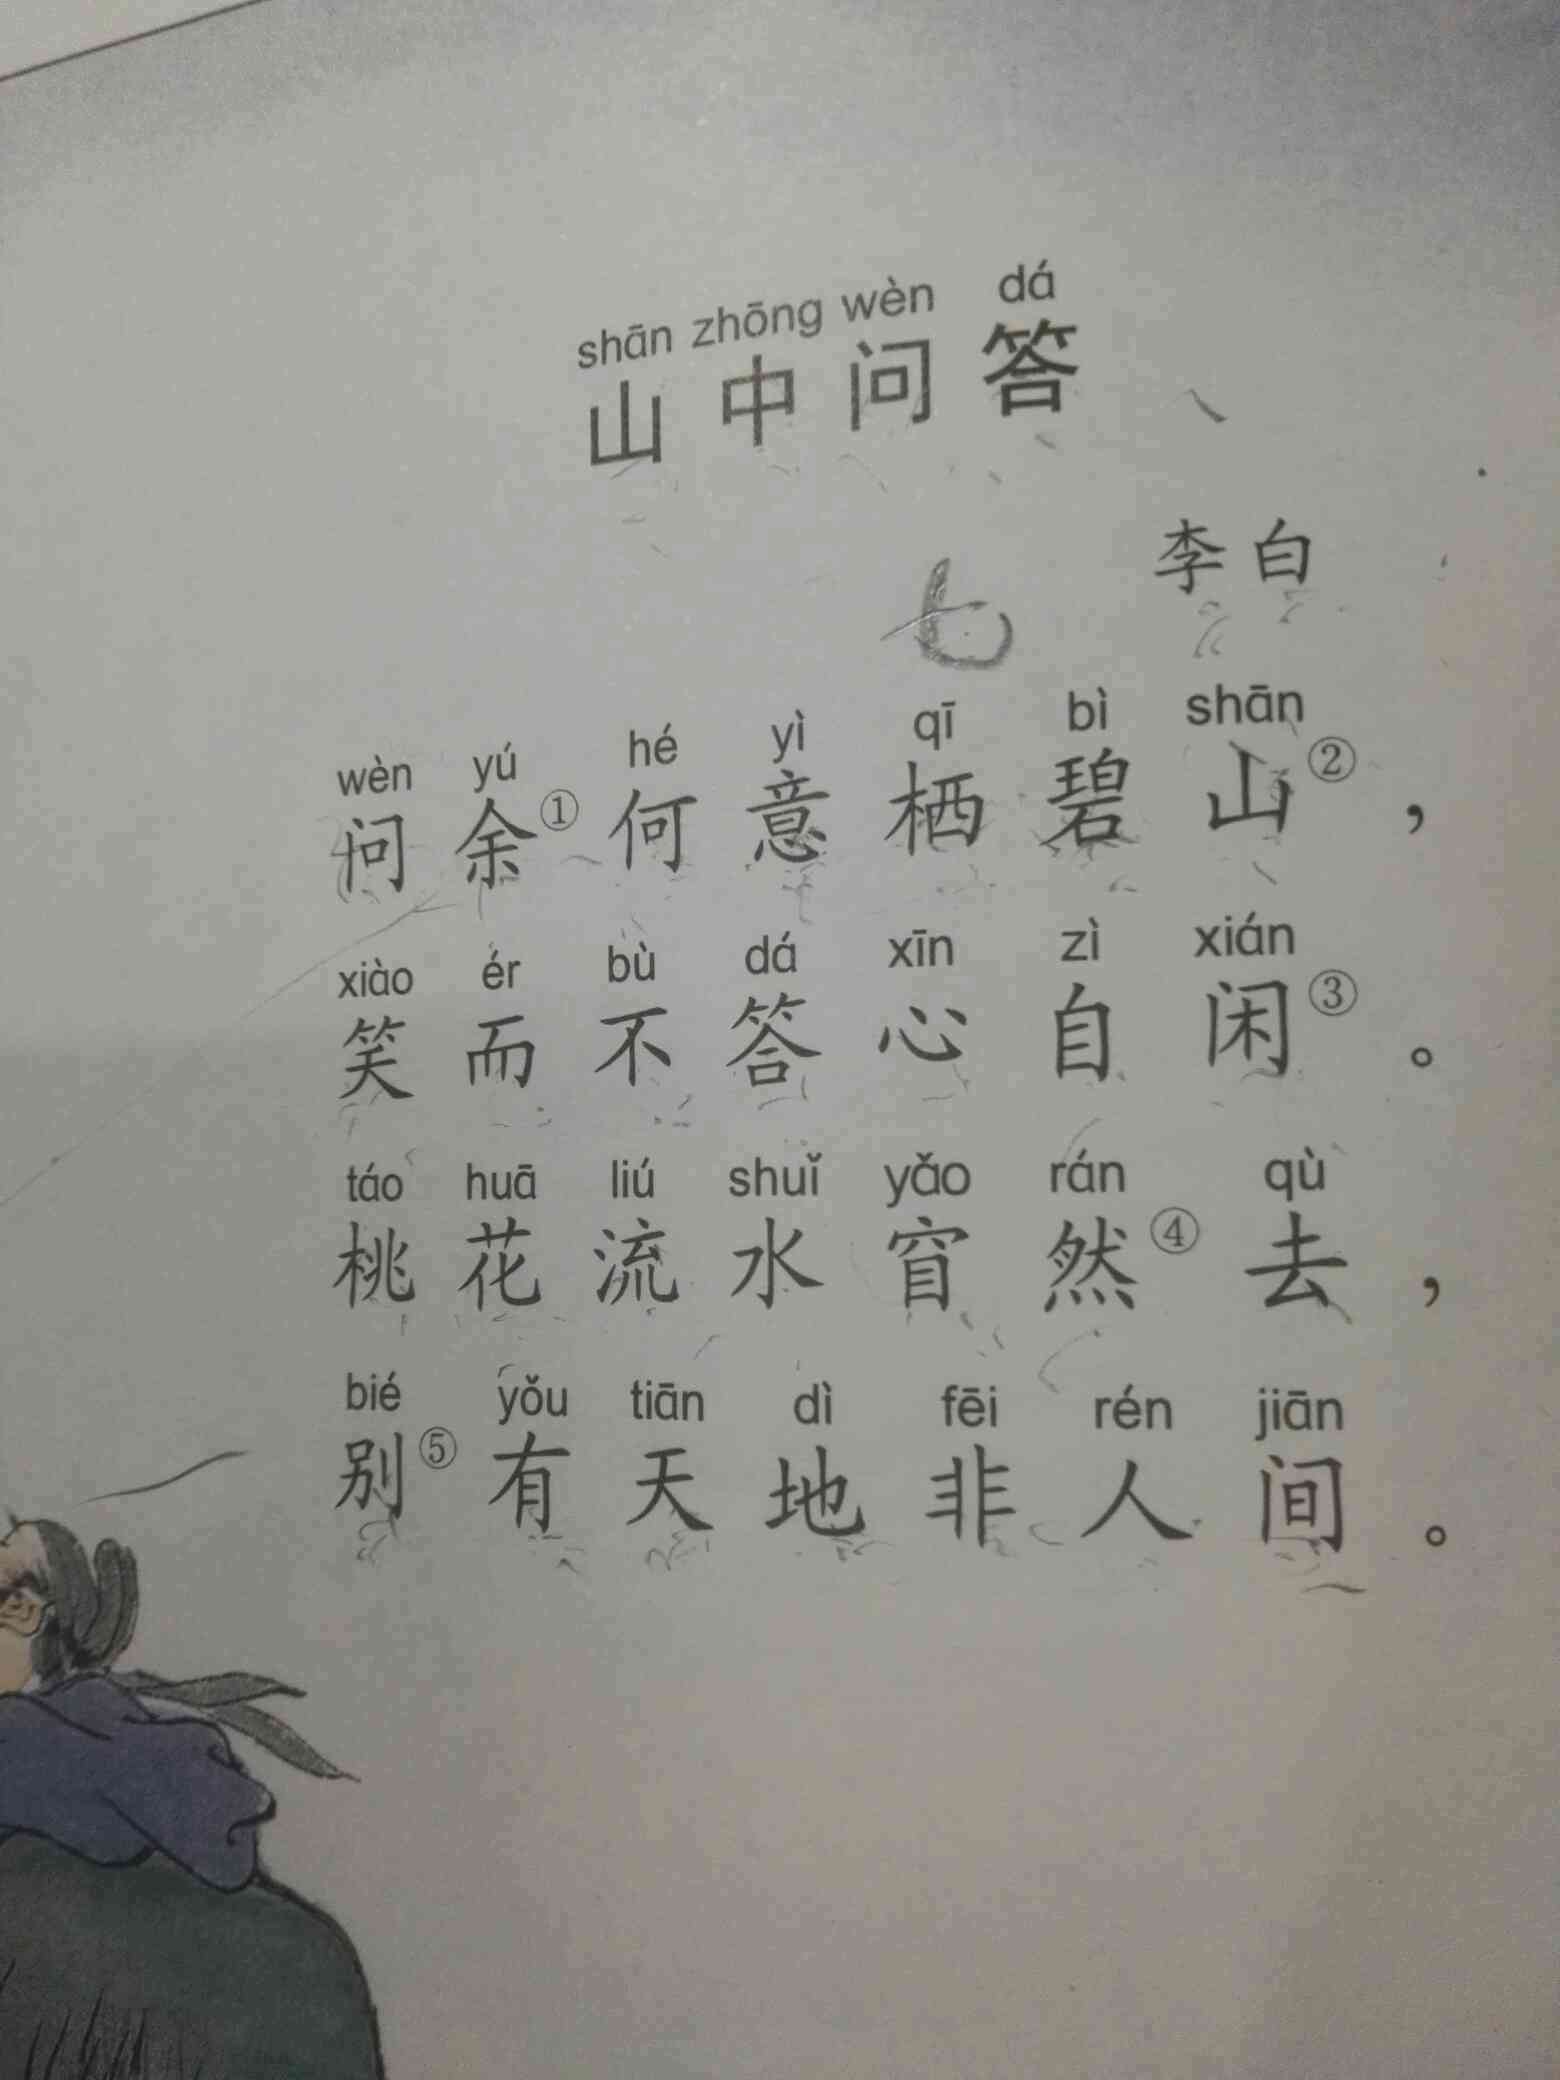 shān zhōng wèn dá
山中问答
李白
七
wèn yú hé yì qī bì shān
问余①何意栖碧山②，
xiào ér bù dá xīn zì xián
笑而不答心自闲③。
táo huā liú shuǐ yǎo rán qù
桃花流水窅然④去，
bié yǒu tiān dì fēi rén jiān
别⑤有天地非人间。